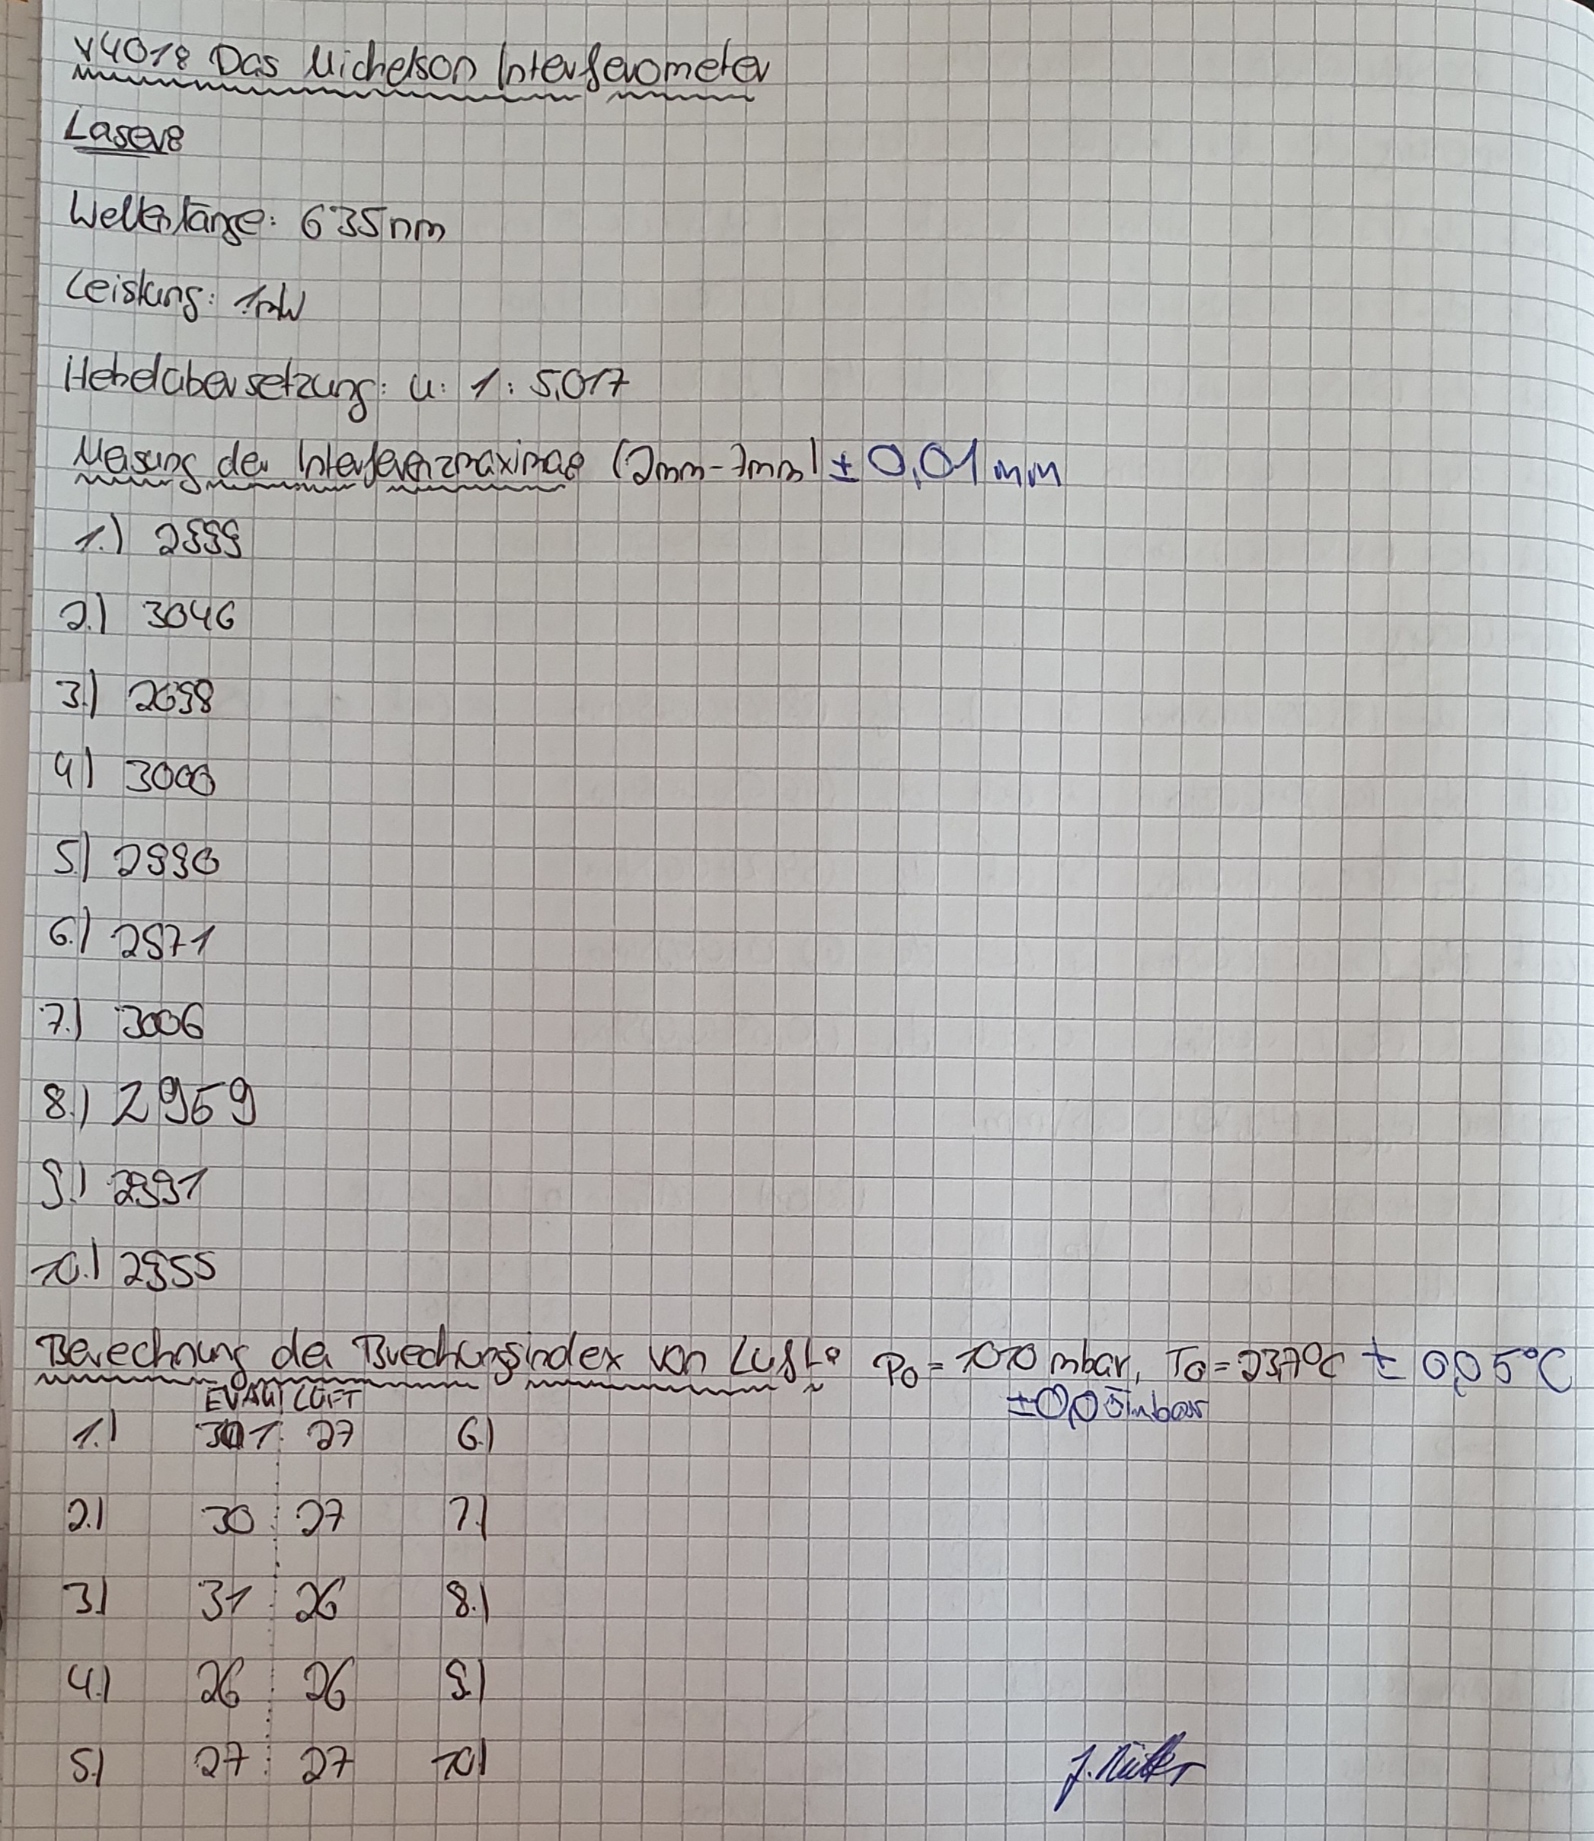 V401: Das Michelson Interferometer
Laser:
Wellenlänge: 635nm
Leistung: 1mW
Hebelübersetzung: ü: 1: 5,017
Messung der Interferenzmaxima: (2mm-7mm) ± 0,01 mm
1.) 2999
2.) 3046
3.) 2698
4.) 3000
5.) 2990
6.) 2971
7.) 3006
8.) 2969
9.) 2991
10.) 2955
Berechnung der Brechungsindex von Luft: P0 = 1010 mbar, T0 = 23,7°C ± 0,05°C
± 0,05mbar
EVAKU LUFT
1.) 27 6.)
2.) 30 27 7.)
3.) 31 26 8.)
4.) 26 26 9.)
5.) 27 27 10.)